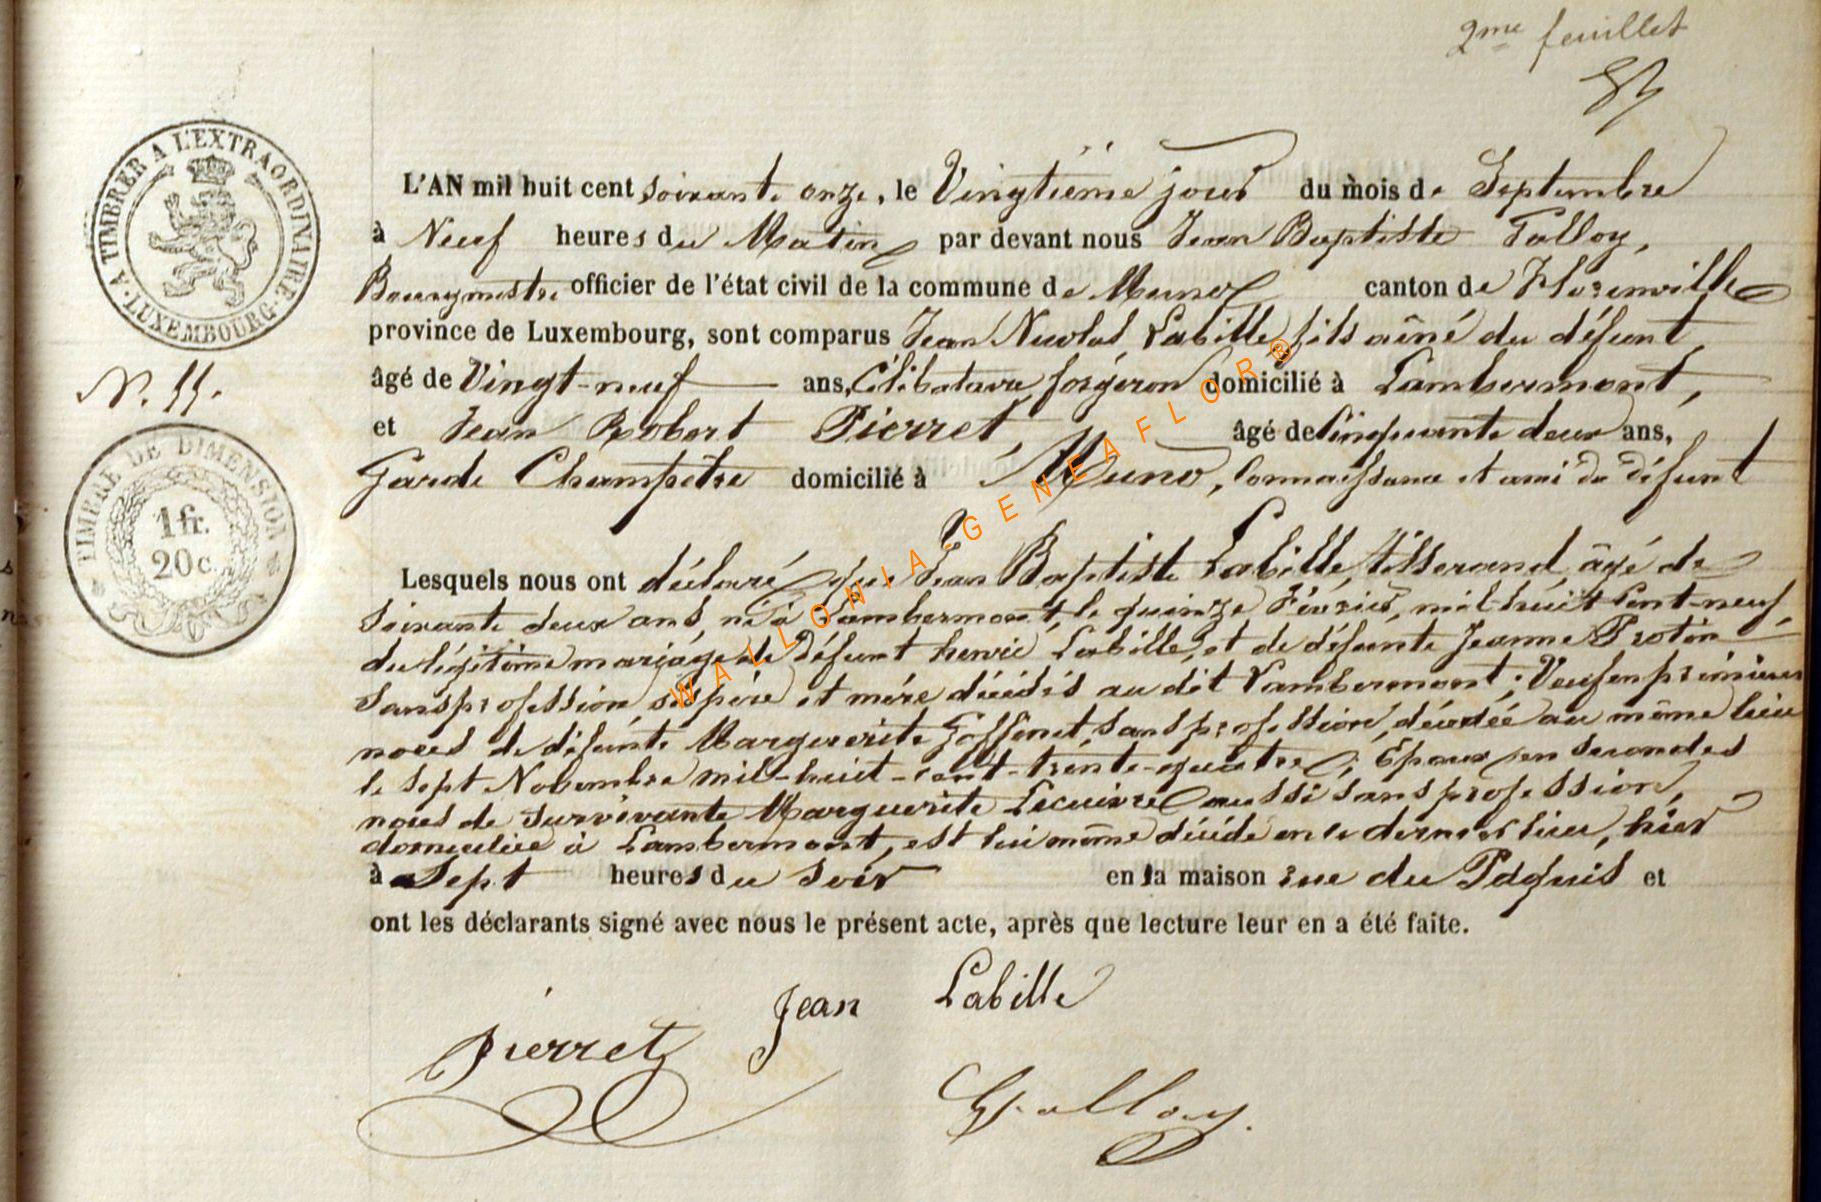 2me feuillet
A TIMBRER A L'EXTRAORDINAIRE
LUXEMBOURG
L'AN mil huit cent soixante onze, le Vingtième jour du mois de Septembre
à Neuf heures du Matin par devant nous Jean Baptiste Falloy,
Bourgmestre officier de l'état civil de la commune de Muno canton de Florenville
province de Luxembourg, sont comparus Jean Nicolas Labille, fils aîné du défunt,
N. 11.
âgé de Vingt-neuf ans, Célibataire forgeron domicilié à Lambermont,
et Jean Robert Pierret, âgé de Cinquante deux ans,
Garde Champêtre domicilié à Muno, Connaissance et ami du défunt
TIMBRE DE DIMENSION
1 fr.
20 c.
Lesquels nous ont déclaré que Jean Baptiste Labille, tisserand, âgé de
Soixante deux ans, né à Lambermont, le quinze Février, mil-huit Cent-neuf,
du légitime mariage de défunt henri Labille, et de défunte Jeanne Protin
Sans profession, ses père et mère décédés au dit Lambermont; Veuf en premières
noces de défunte Marguerite Goffinet, sans profession, décédée au même lieu
le sept Novembre mil-huit-cent-trente-quatre; Epoux en secondes
noces de survivante Marguerite Lecuivre aussi sans profession,
domiciliée à Lambermont, est lui même décédé en ce dernier lieu, hier
à Sept heures du soir en sa maison rue du Paquis et
ont les déclarants signé avec nous le présent acte, après que lecture leur en a été faite.
Jean Labille
Pierret
Falloy
WALLONIA-GENEAFLOR®